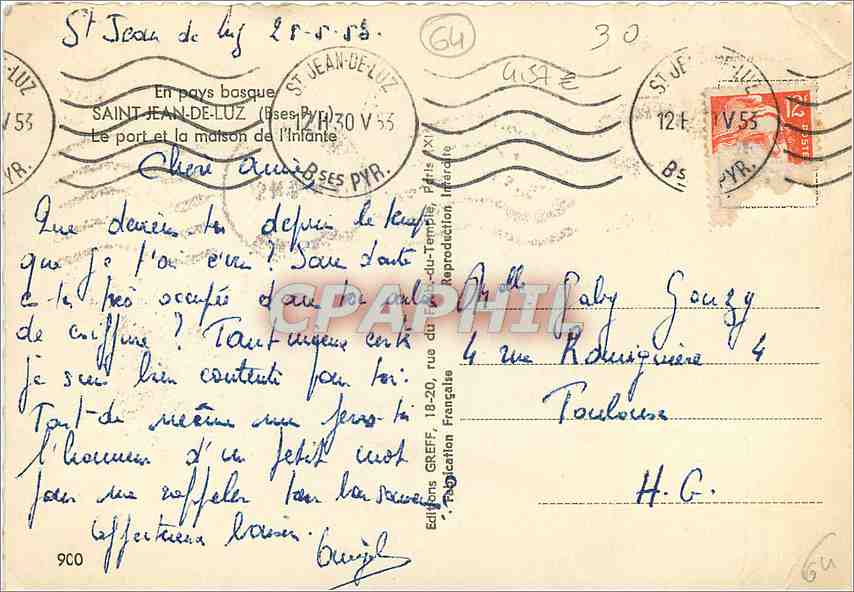 St Jean de Luz
64
30
4,57 €
En pays basque
SAINT-JEAN-DE-LUZ (Bses-Pyr.)
Le port et la maison de l'Infante
ST JEAN-DE-LUZ
12 H. 30 V 53
Bses PYR.
12
POSTES
Chère amie
Que deviens tu depuis le temps
que je t'ai
? Sans doute
es tu très occupée dans ton salon
de coiffure ? Tant mieux
je suis bien contente pour toi.
Tout de même me feras-tu
l'honneur d'un petit mot
pour me rappeler ton bon souvenir
Affectueux baisers.
Mlle Gaby Gouzy
4 rue Romiguière 4
Toulouse
H. G.
Editions GREFF, 18-20, rue du Faub.-du-Temple, Paris (XIe)
Fabrication Française Reproduction Interdite
CPAPHIL
900
64